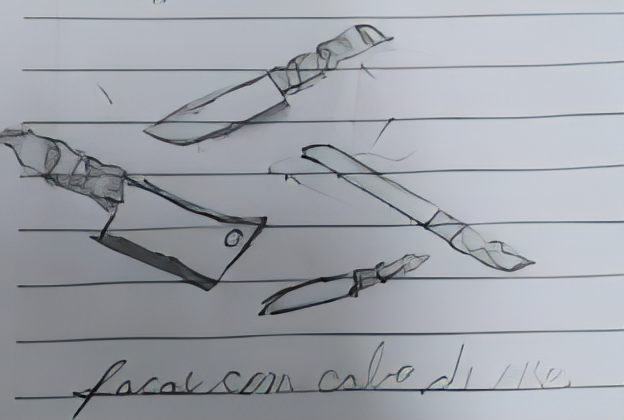 facas com cabo di